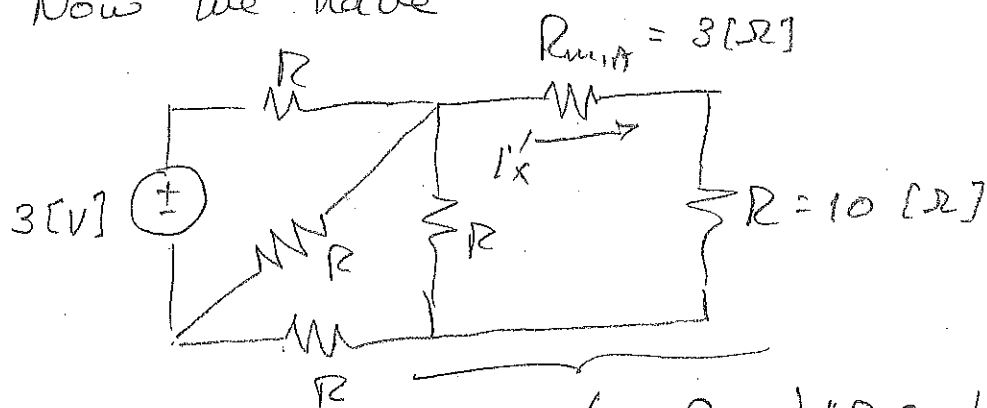 Now we have
R_min = 3[Ω]
R
i'x
3[V]
R
R
R = 10 [Ω]
R